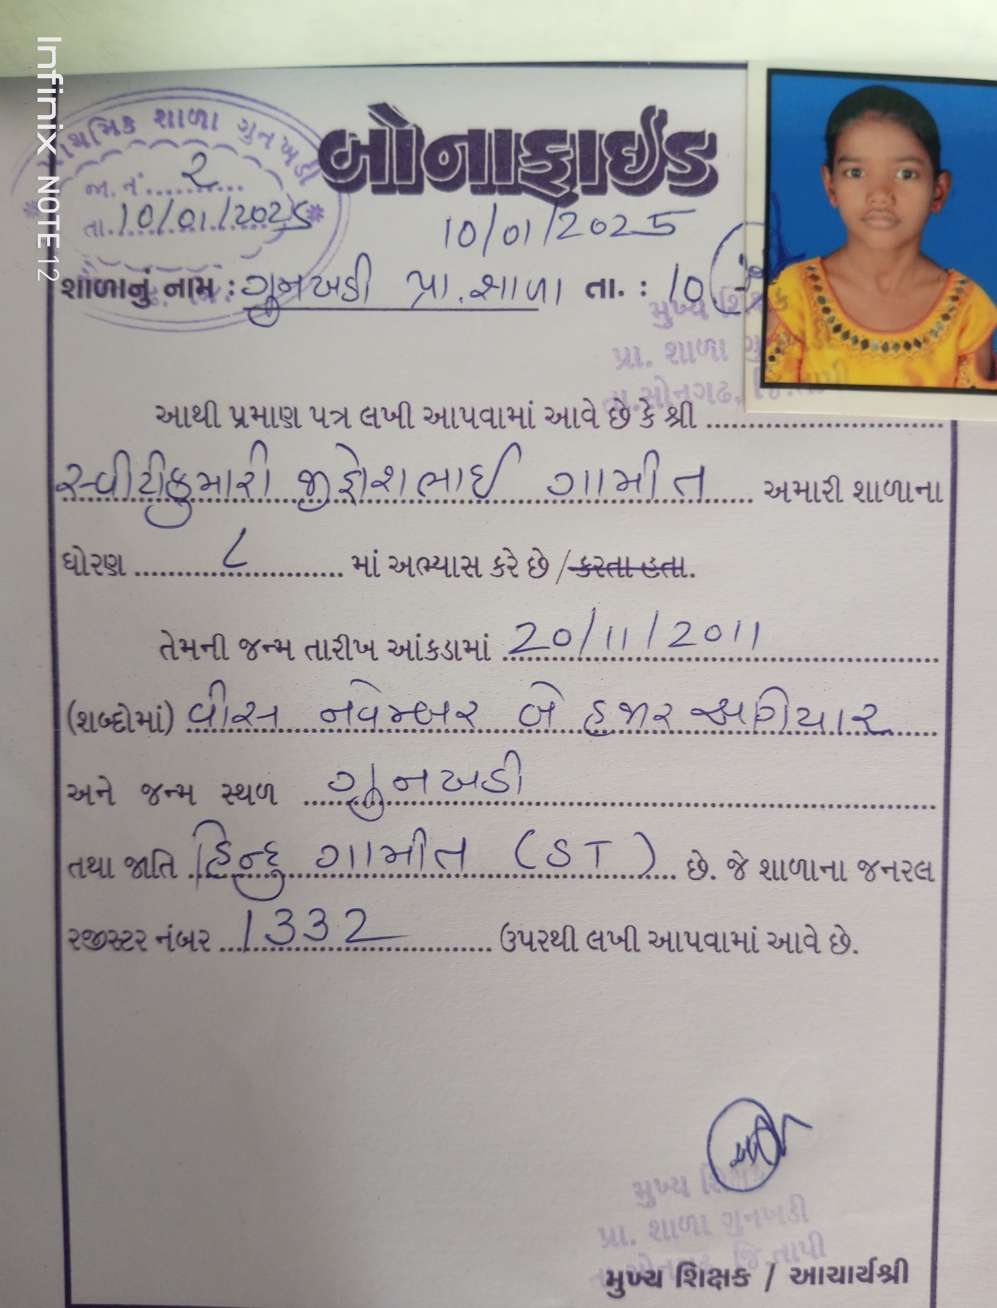 Infinix NOTE 12
પ્રાથમિક શાળા ગુનખડી
જા.નં. 2
તા. 10/01/2025
બોનાફાઈડ
10/01/2025
શાળાનું નામ : ગુનખડી પ્રા. શાળા તા. : 10
મુખ્ય શિક્ષક
પ્રા. શાળા
તા.સોનગઢ,
આથી પ્રમાણ પત્ર લખી આપવામાં આવે છે કે શ્રી
સ્વીટીકુમારી જીજ્ઞેશભાઈ ગામીત અમારી શાળાના
ધોરણ ૮ માં અભ્યાસ કરે છે / કરતા હતા.
તેમની જન્મ તારીખ આંકડામાં 20/11/2011
(શબ્દોમાં) વીસ નવેમ્બર બે હજાર અગિયાર
અને જન્મ સ્થળ ગુનખડી
તથા જાતિ હિન્દુ ગામીત (ST) છે. જે શાળાના જનરલ
રજીસ્ટર નંબર 1332 ઉપરથી લખી આપવામાં આવે છે.
મુખ્ય શિક્ષક
પ્રા. શાળા ગુનખડી
તા.સોનગઢ, જિ.તાપી
મુખ્ય શિક્ષક / આચાર્યશ્રી